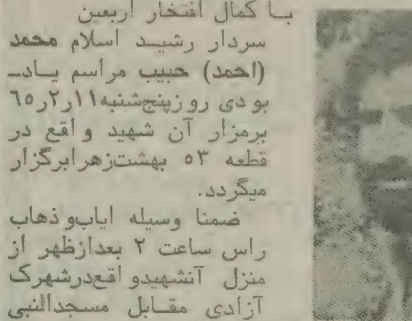 با کمال افتخار اربعین
سردار رشید اسلام محمد
(احمد) حبیب مراسم یاد-
بودی روزپنجشنبه ۱۱ر۲ر۶۵
برمزار آن شهید واقع در
قطعه ۵۳ بهشت‌زهرا برگزار
میگردد.
ضمنا وسیله ایاب‌و ذهاب
راس ساعت ۲ بعدازظهر از
منزل آنشهیدواقع‌درشهرک
آزادی مقابل مسجدالنبی